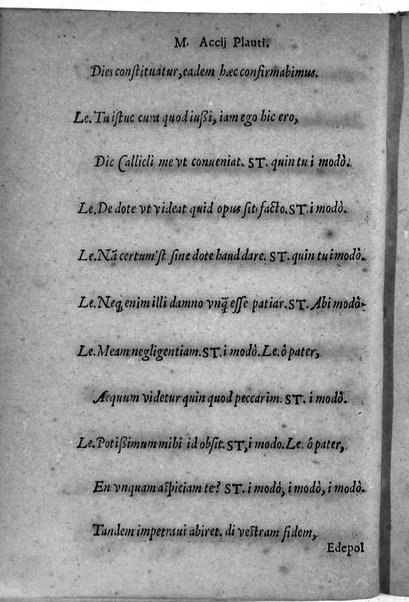 M. Accij Plauti.
Dies constituatur, eadem hæc confirmabimus.
Le. Tu istuc cura quod iußi, iam ego hic ero,
Dic Callicli me vt conueniat. ST. quin tu i modò.
Le. De dote vt videat quid opus sit facto. ST. i modò.
Le. Nã certum'st sine dote haud dare. ST. quin tu imodò.
Le. Neq; enim illi damno vnq̃ esse patiar. ST. Abi modò.
Le. Meam negligentiam. ST. i modò. Le. ô pater,
Æequum videtur quin quod peccarim. ST. i modò.
Le. Potißimum mihi id obsit. ST, i modo. Le. ô pater,
En vnquam aspiciam te? ST. i modò, i modò, i modò.
Tandem impetraui abiret. di vestram fidem,
Edepol